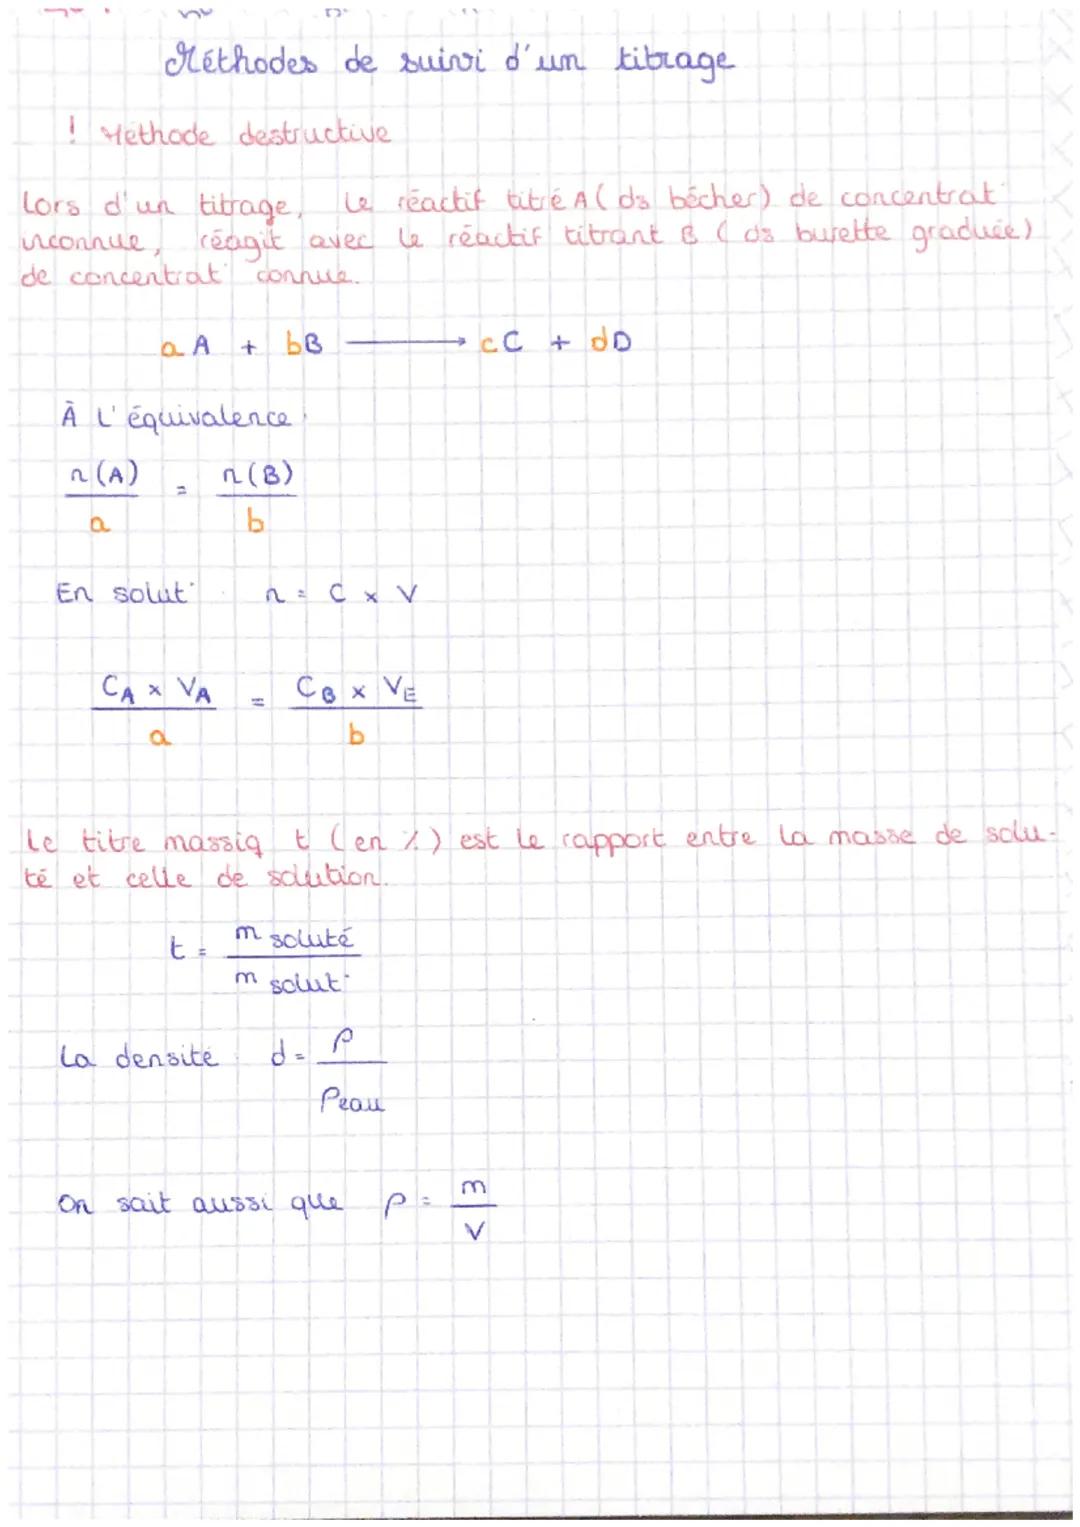 Méthodes de suivi d'un titrage
! Méthode destructive
Lors d'un titrage, le réactif titré A ( ds bécher) de concentrat°
inconnue, réagit avec le réactif titrant B ( ds burette graduée)
de concentrat° connue.
a A + bB → cC + dD
À l'équivalence :
n(A) / a = n(B) / b
En solut° : n = C x V
CA x VA / a = CB x VE / b
Le titre massiq t (en %) est le rapport entre la masse de solu-
té et celle de solution.
t = m soluté / m solut°
La densité : d = ρ / ρeau
On sait aussi que ρ = m / V